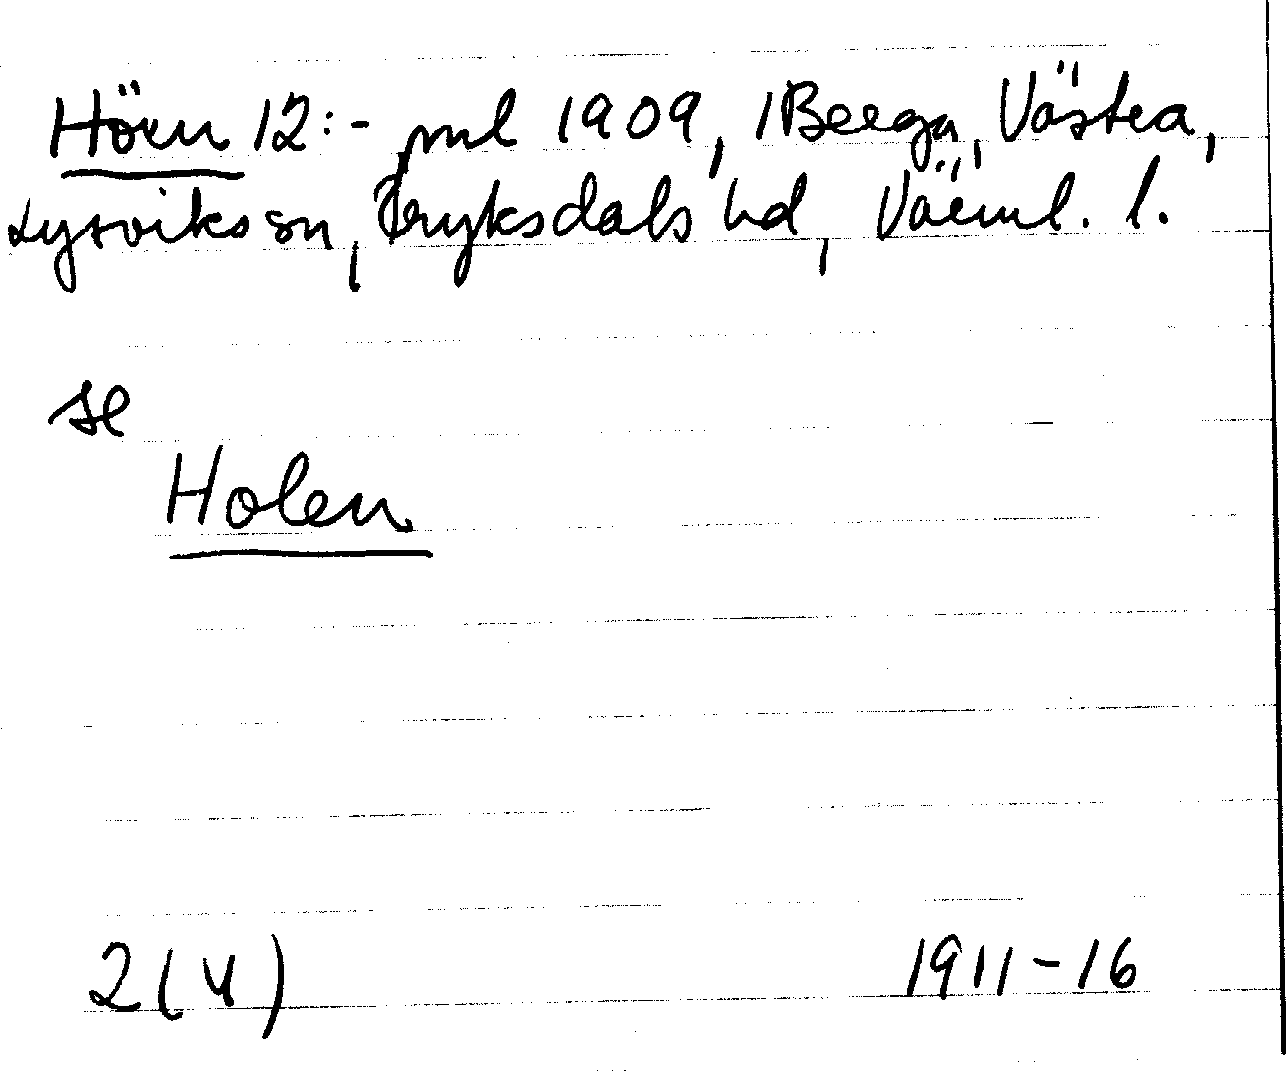 Hörn 12:- ml 1909, 1 Berga, Västra,
Lysviks sn, Fryksdals hd, Värml. l.
se
Holen
2(4)
1911-16